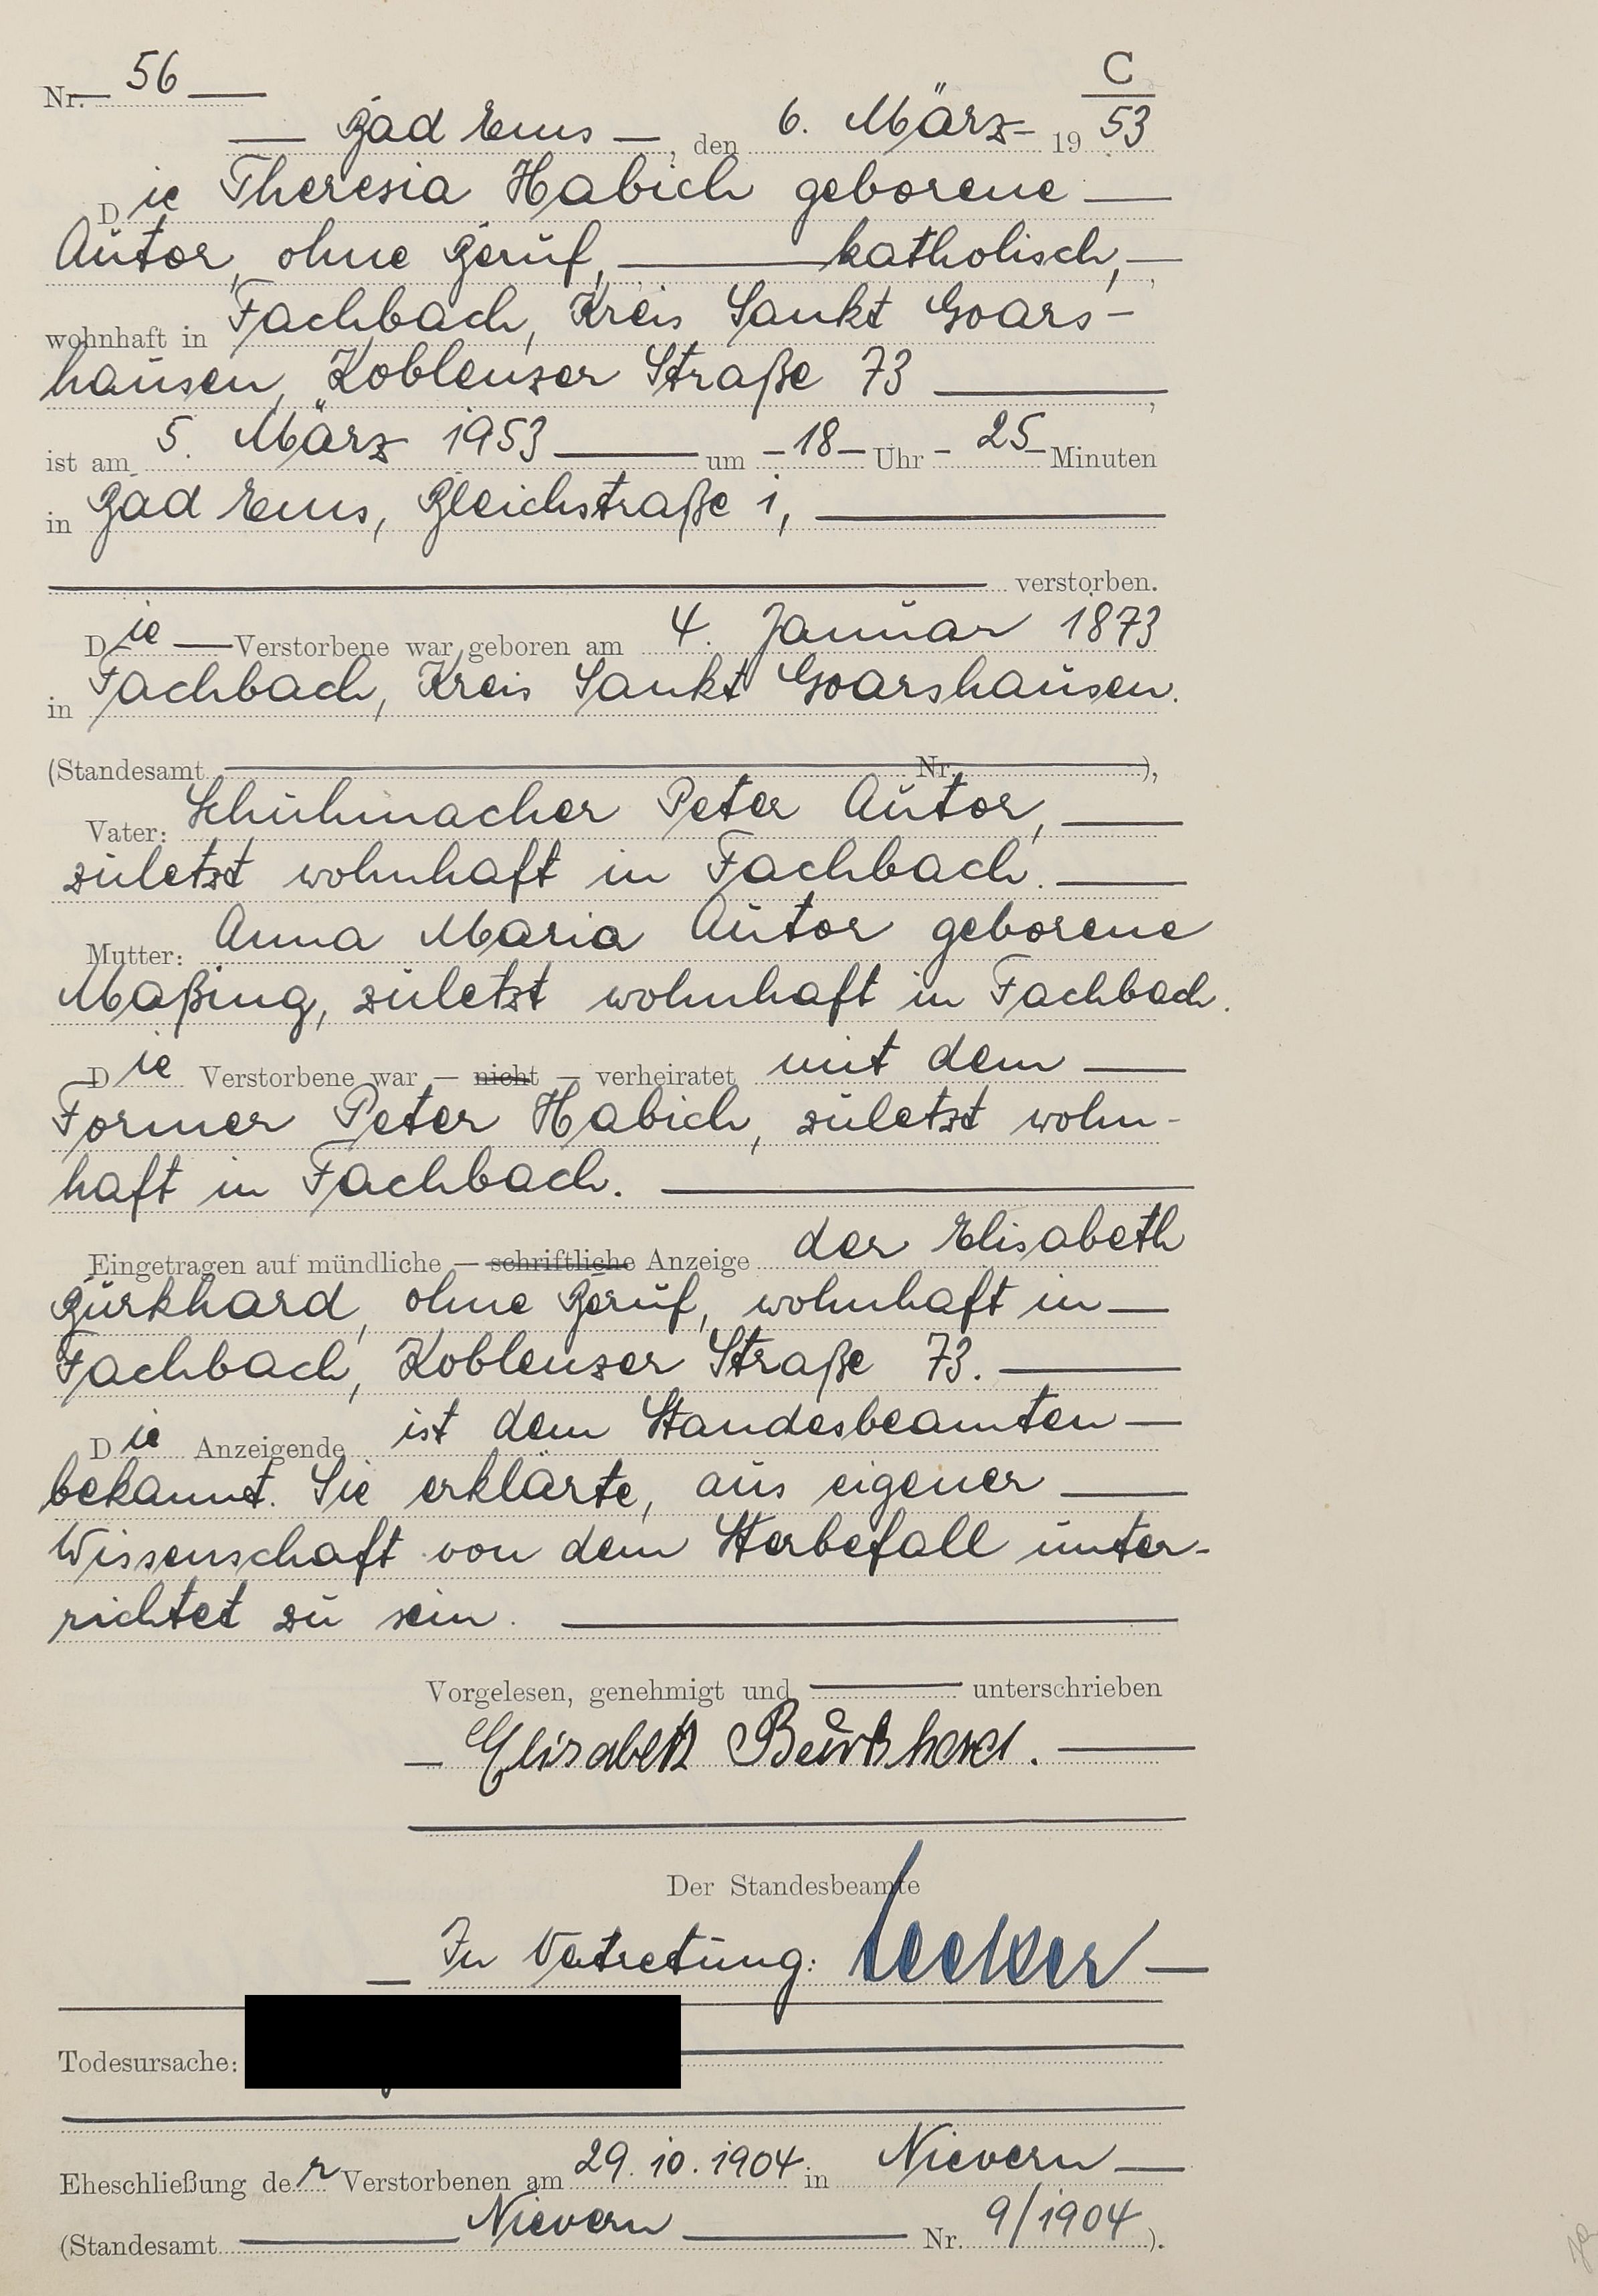 C
Nr. 56
Bad Ems, den 6. März 19 53
Die Theresia Habich geborene
Autor, ohne Beruf, katholisch,
wohnhaft in Fachbach, Kreis Sankt Goars-
hausen, Koblenzer Straße 73,
ist am 5. März 1953 um 18 Uhr 25 Minuten
in Bad Ems, Bleichstraße 1,
verstorben.
Die Verstorbene war geboren am 4. Januar 1873
in Fachbach, Kreis Sankt Goarshausen.
(Standesamt Nr. ),
Vater: Schuhmacher Peter Autor,
zuletzt wohnhaft in Fachbach.
Mutter: Anna Maria Autor geborene
Maßing, zuletzt wohnhaft in Fachbach.
Die Verstorbene war — nicht — verheiratet mit dem
Former Peter Habich, zuletzt wohn-
haft in Fachbach.
Eingetragen auf mündliche — schriftliche Anzeige der Elisabeth
Burkhard, ohne Beruf, wohnhaft in
Fachbach, Koblenzer Straße 73.
Die Anzeigende ist dem Standesbeamten
bekannt. Sie erklärte, aus eigener
Wissenschaft von dem Sterbefall unter-
richtet zu sein.
Vorgelesen, genehmigt und unterschrieben
Elisabeth Burkhard.
Der Standesbeamte
In Vertretung:
Todesursache:
Eheschließung der Verstorbenen am 29.10.1904 in Nievern
(Standesamt Nievern Nr. 9/1904).